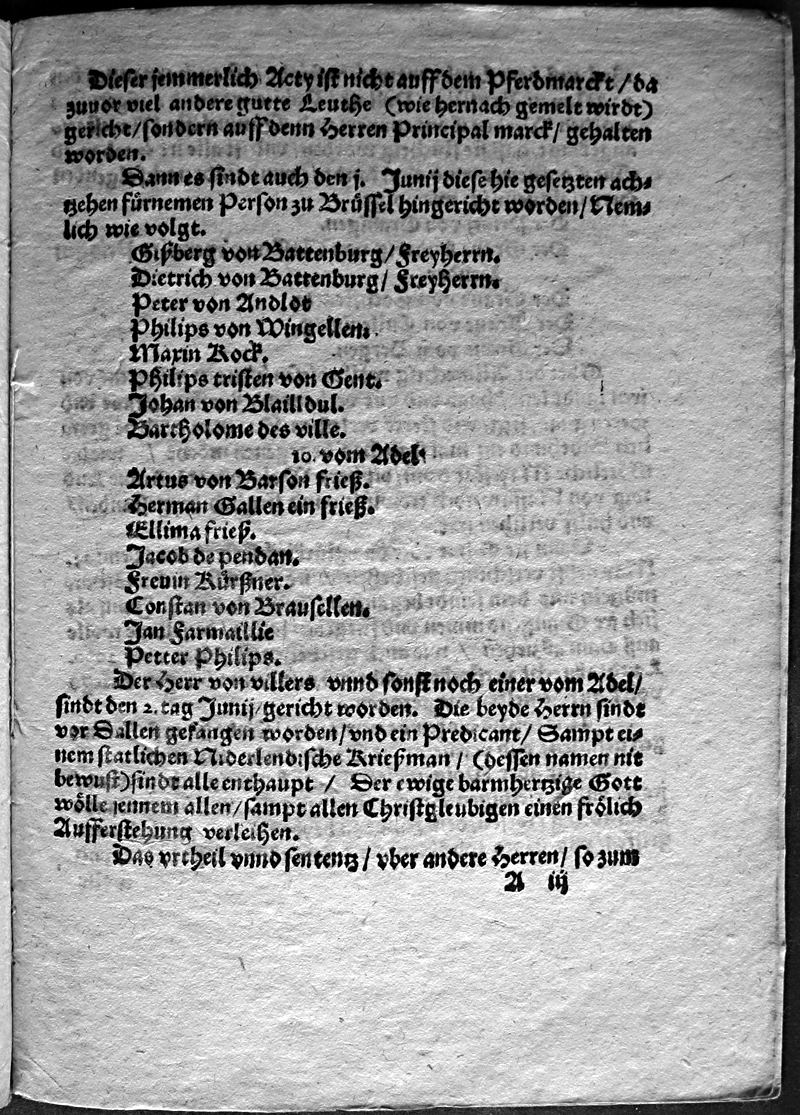 Dieser jemmerlich Acty ist nicht auff dem Pferdmarckt / da
zuuor viel andere gutte Leuthe (wie hernach gemelt wirdt)
gericht / sondern auff denn Herren Principal marck / gehalten
worden.
Dann es sindt auch den j. Junij diese hie gesetzten ach-
tzehen fürnemen Person zu Brüssel hingericht worden / Nem-
lich wie volgt.
Gißberg von Battenburg / Freyherrn.
Dietrich von Battenburg / Freyherrn.
Peter von Andlot
Philips von Wingellem.
Maxin Kock.
Philips tristen von Gent.
Johan von Blailldul.
Bartholome des ville.
10. vom Adel
Artus von Barson frieß.
Herman Gallen ein frieß.
Ellima frieß.
Jacob de pendan.
Freuin Kürßner.
Constan von Brausellen.
Jan Farmaillie
Petter Philips.
Der Herr von villers vnnd sonst noch einer vom Adel /
sindt den 2. tag Junij / gericht worden. Die beyde Herrn sindt
vor Dallen gefangen worden / vnd ein Predicant / Sampt ei-
nem statlichen Niderlendische Krießman / (dessen namen nit
bewust) sindt alle enthaupt / Der ewige barmhertzige Gott
wölle jennem allen / sampt allen Christgleubigen einen frölich
Aufferstehung verleihen.
Das vrtheil vnnd sententz / vber andere Herren / so zum
A iij